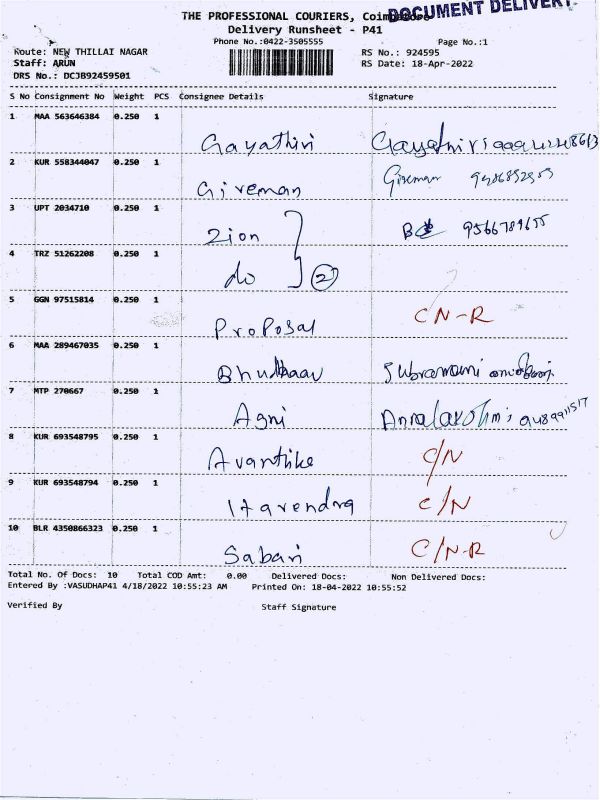 THE PROFESSIONAL COURIERS, Coimbatore
DOCUMENT DELIVERY
Delivery Runsheet - P41
Phone No.:0422-3505555
Page No.:1
Route: NEW THILLAI NAGAR
RS No.: 924595
Staff: ARUN
RS Date: 18-Apr-2022
DRS No.: DCJB92459501
S No Consignment No Weight PCS Consignee Details Signature
1 MAA 563646384 0.250 1
Gayathiri Gayathiri
2 KUR 558344047 0.250 1
Gireman Gireman
3 UPT 2034710 0.250 1
Zion 9566789655
4 TRZ 51262208 0.250 1
do 2
5 GGN 97515814 0.250 1
Proposal CN-R
6 MAA 289467035 0.250 1
Subramani
7 MTP 270667 0.250 1
Agni
8 KUR 693548795 0.250 1
Avantike C/N
9 KUR 693548794 0.250 1
Harendra C/N
10 BLR 4350866323 0.250 1
Sabari C/N-R
Total No. Of Docs: 10 Total COD Amt: 0.00 Delivered Docs: Non Delivered Docs:
Entered By :VASUDHAP41 4/18/2022 10:55:23 AM Printed On: 18-04-2022 10:55:52
Verified By Staff Signature